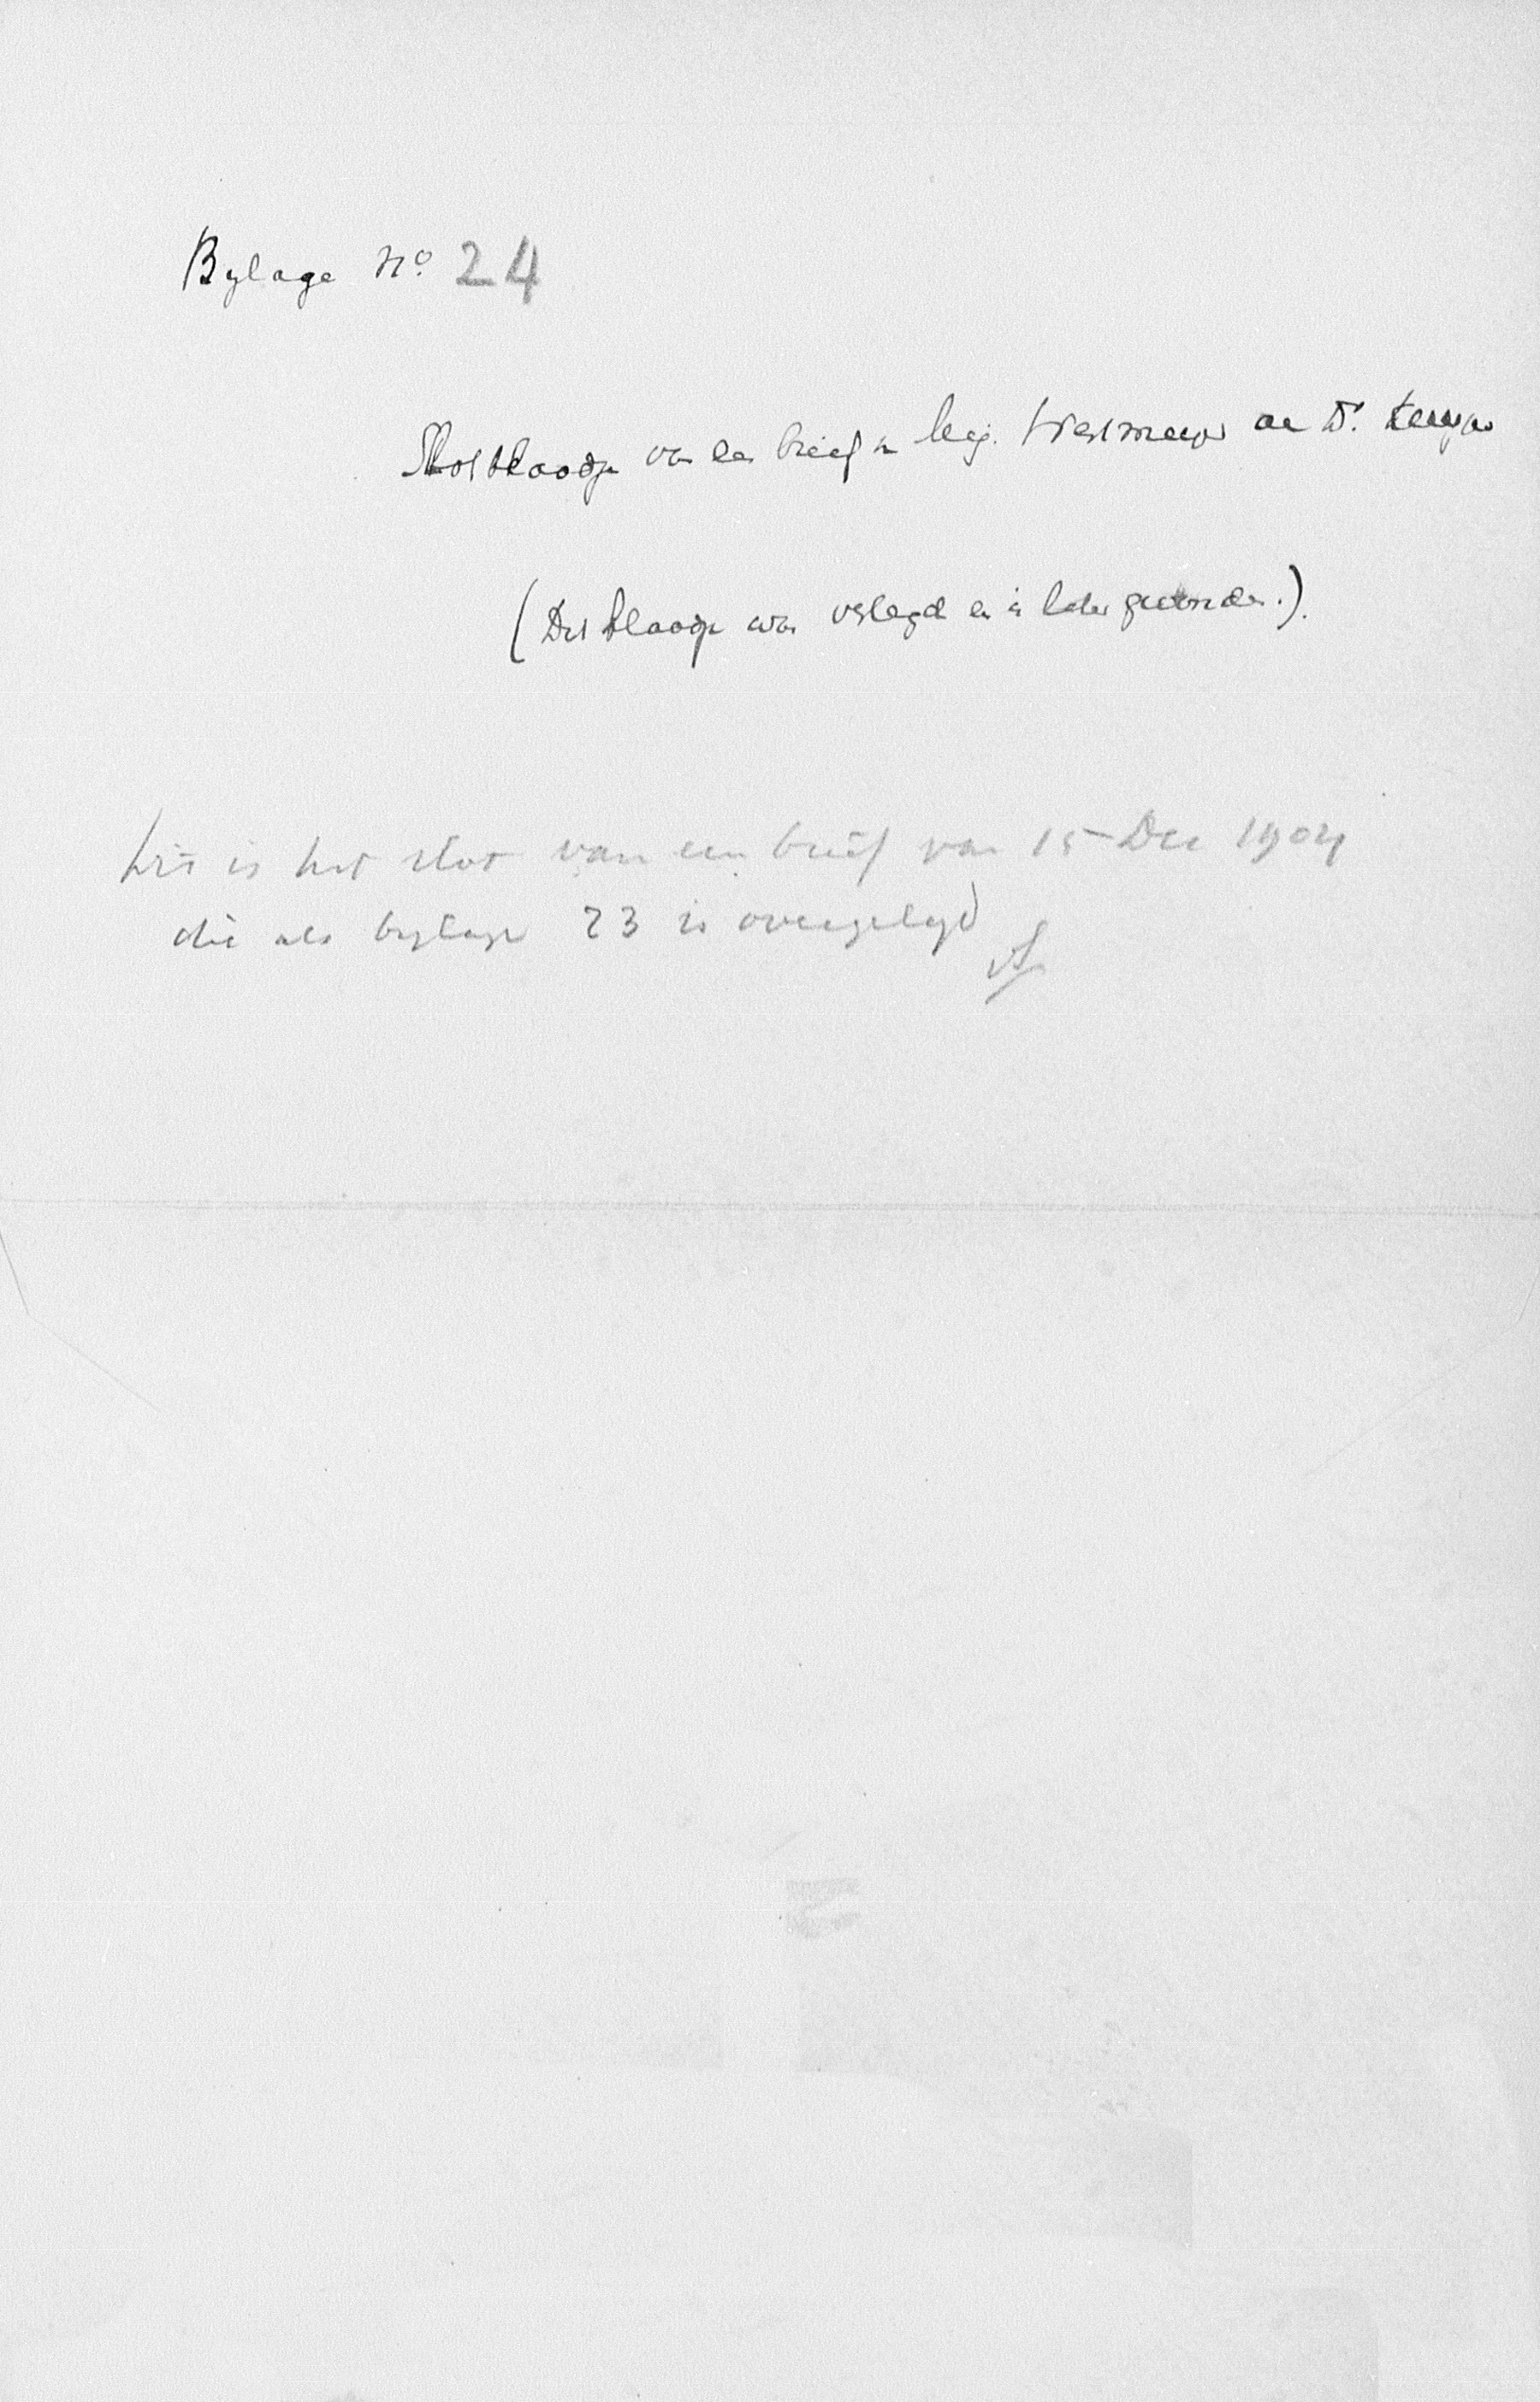 Bylage No. 24
Slotblaadje van een brief v. Mej. Westmeyer aan Dr. Kuyper
(Dit blaadje was verlegd en is later gevonden.).
Dit is het slot van een brief van 15 Dec 1904
die als bylage 23 is overgelegd